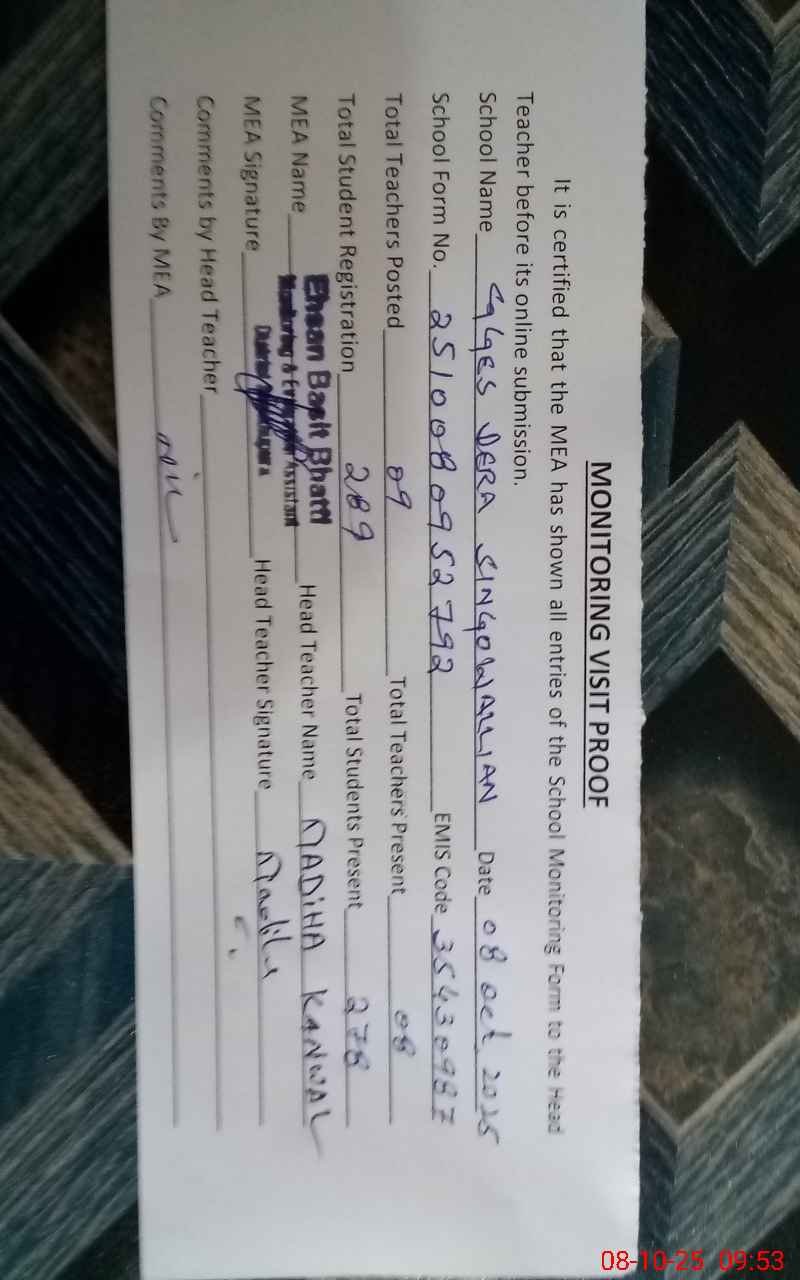 MONITORING VISIT PROOF
It is certified that the MEA has shown all entries of the School Monitoring Form to the Head
Teacher before its online submission.
School Name GGES DERA SINGOWALLIAN Date 08 Oct 2025
School Form No. 2510080952792 EMIS Code 35430987
Total Teachers Posted 09 Total Teachers Present 08
Total Student Registration 289 Total Students Present 278
MEA Name Ehsan Basit Bhatti Head Teacher Name MADIHA KANWAL
Monitoring & Evaluation Assistant
MEA Signature District Head Teacher Signature Madiha
Comments by Head Teacher
Comments By MEA Nil
08-10-25 09:53